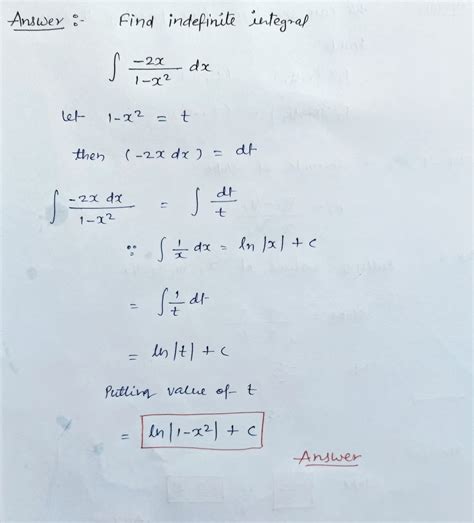 Answer :- Find indefinite integral
∫ -2x / 1-x² dx
let 1-x² = t
then (-2x dx) = dt
∫ -2x dx / 1-x² = ∫ dt / t
∵ ∫ 1/x dx = ln |x| + c
= ∫ 1/t dt
= ln |t| + c
Putting value of t
= ln |1-x²| + c
Answer